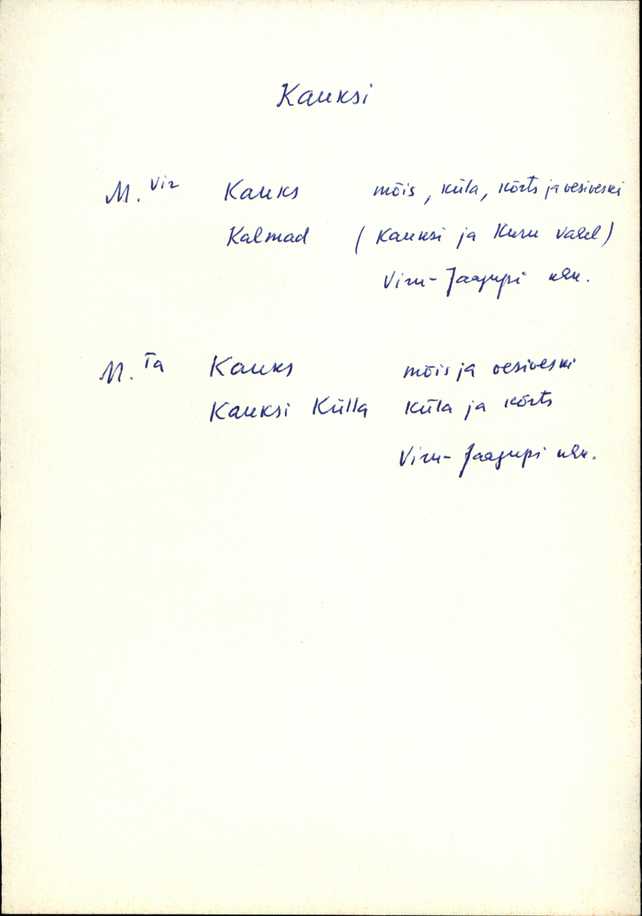 Kauksi
M. Vir Kauks mõis, küla, kõrts ja vesiveski
Kalmad (Kauksi ja Kuru vahel)
Viru-Jaagupi khk.
M. Ta Kauks mõis ja vesiveski
Kauksi Külla küla ja kõrts
Viru-Jaagupi khk.